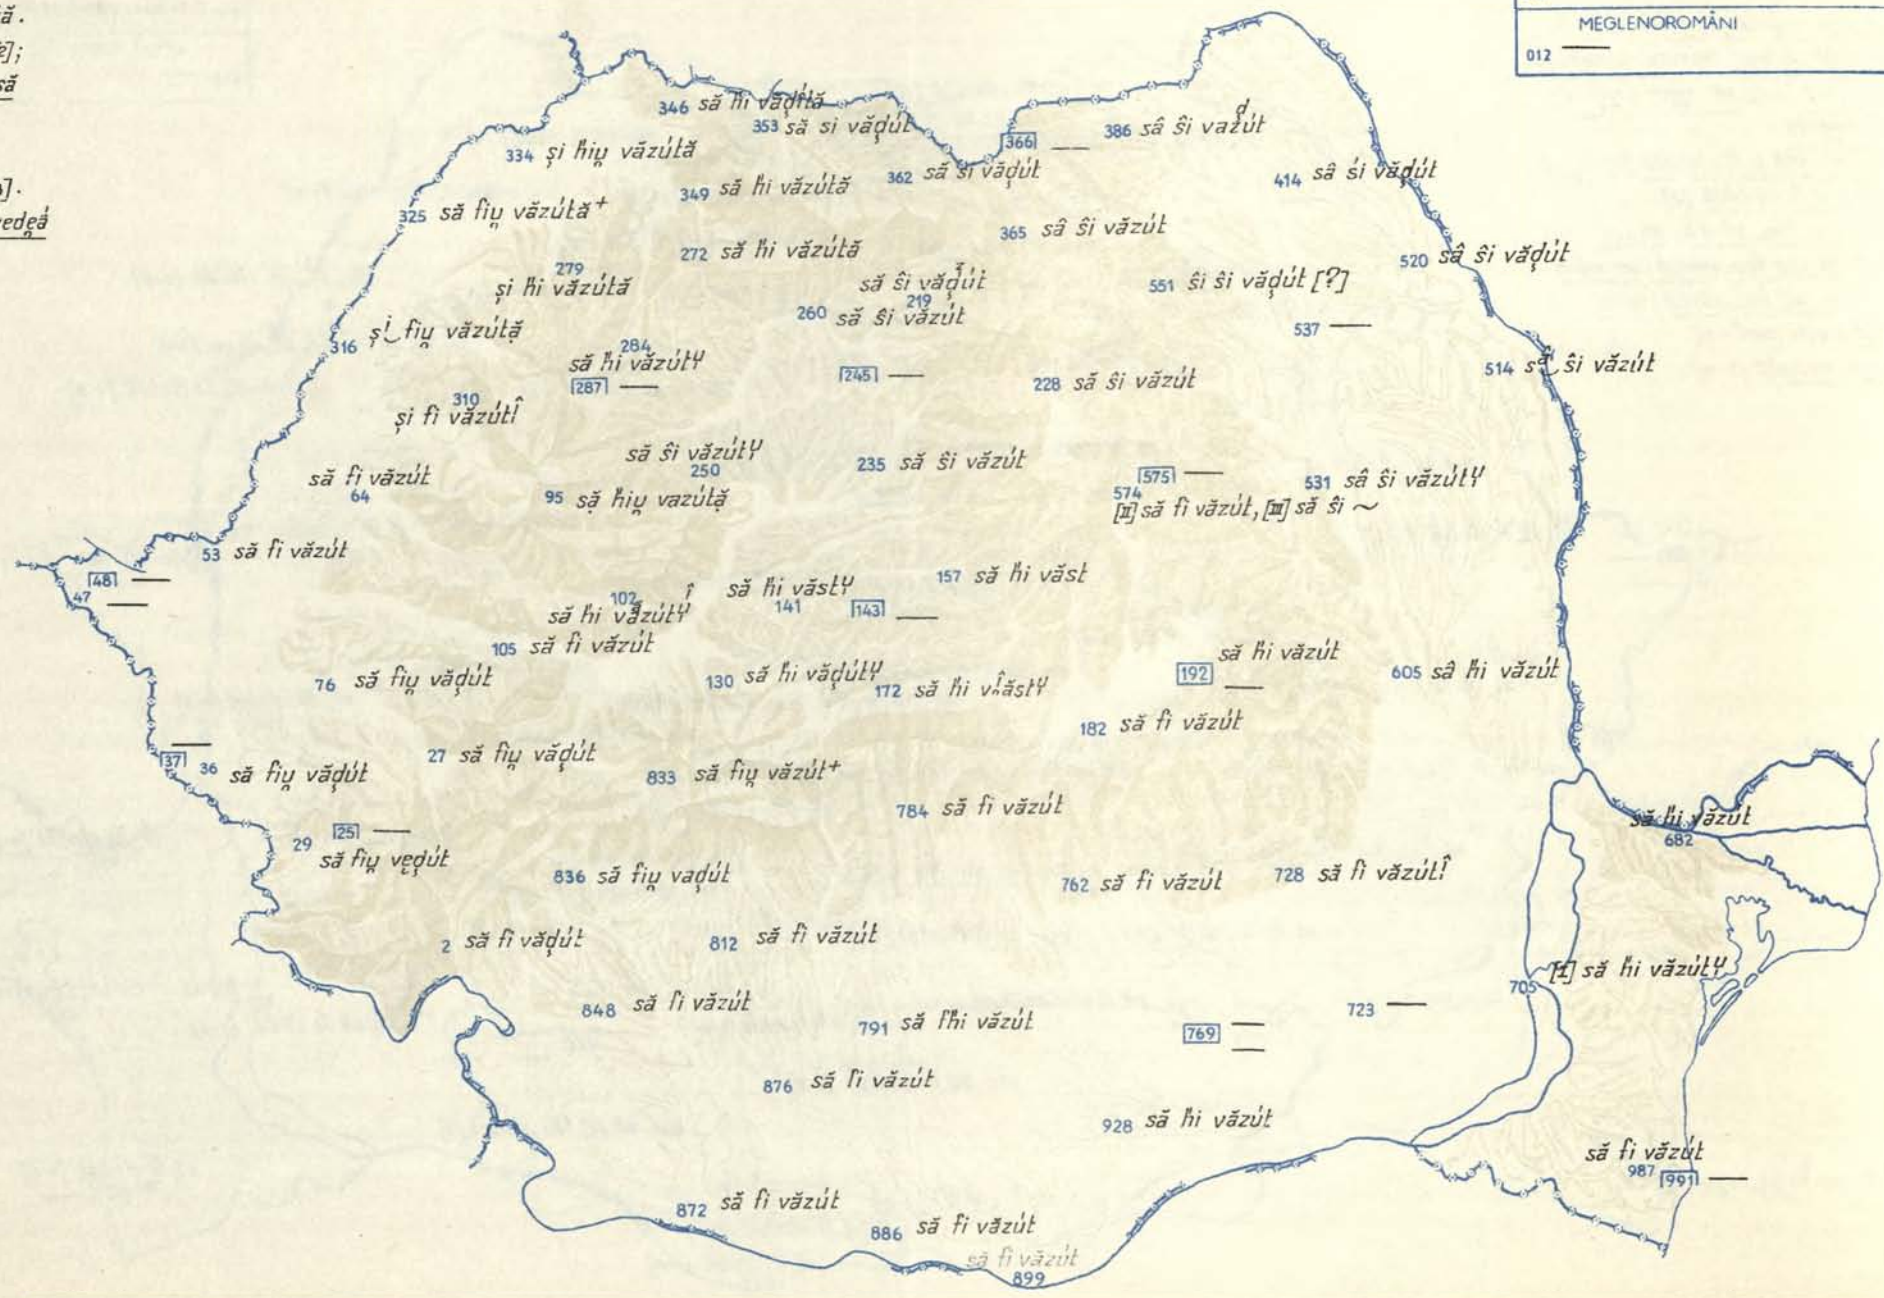 ă.
MEGLENOROMÂNI
012 —
să
346 să h́i văd̦ită
353 să si văd̦út
366 —
386 sâ ŝi vazút
d̦
334 și h́iu̯ văzútă
349 să h́i văzútă
362 să śi văd̦út
414 sâ śi văd̦út
325 să fiu̯ văzútă+
365 sâ ŝi văzút
272 să h́i văzútă
520 sâ ŝi văd̦út
279
și h́i văzútă
să ŝi văd̦út
219
551 ŝi ŝi văd̦út [?]
260 să ŝi văzút
537 —
316 și fiu̯ văzútă
284
să h́i văzútʸ
287 —
245 —
228 să ŝi văzút
514 să ŝi văzút
310
și fi văzútî
să ŝi văzútʸ
250
235 să ŝi văzút
575 —
531 sâ ŝi văzútʸ
să fi văzút
64
95 să h́iu̯ vazútă
574
[II] să fi văzút, [III] să ŝi ~
53 să fi văzút
48 —
47 —
102
să h́i văzútʸ
să h́i văstʸ
141
143 —
157 să h́i văst
105 să fi văzút
să h́i văzút
192 —
605 sâ h́i văzút
76 să fiu̯ văd̦út
130 să h́i văd̦útʸ
172 să h́i văstʸ
182 să fi văzút
37 —
36 să fiu̯ văd̦út
27 să fiu̯ văd̦út
833 să fiu̯ văzút+
784 să fi văzút
să h́i văzút
682
25 —
29 să fiu̯ vęd̦út
836 să fiu̯ vad̦út
762 să fi văzút
728 să fi văzútî
2 să fi văd̦út
812 să fi văzút
[I] să h́i văzútʸ
705
848 să fi văzút
791 să fh́i văzút
769 —
—
723 —
876 să fi văzút
928 să h́i văzút
să fi văzút
987
991 —
872 să fi văzút
886 să fi văzút
să fi văzút
899